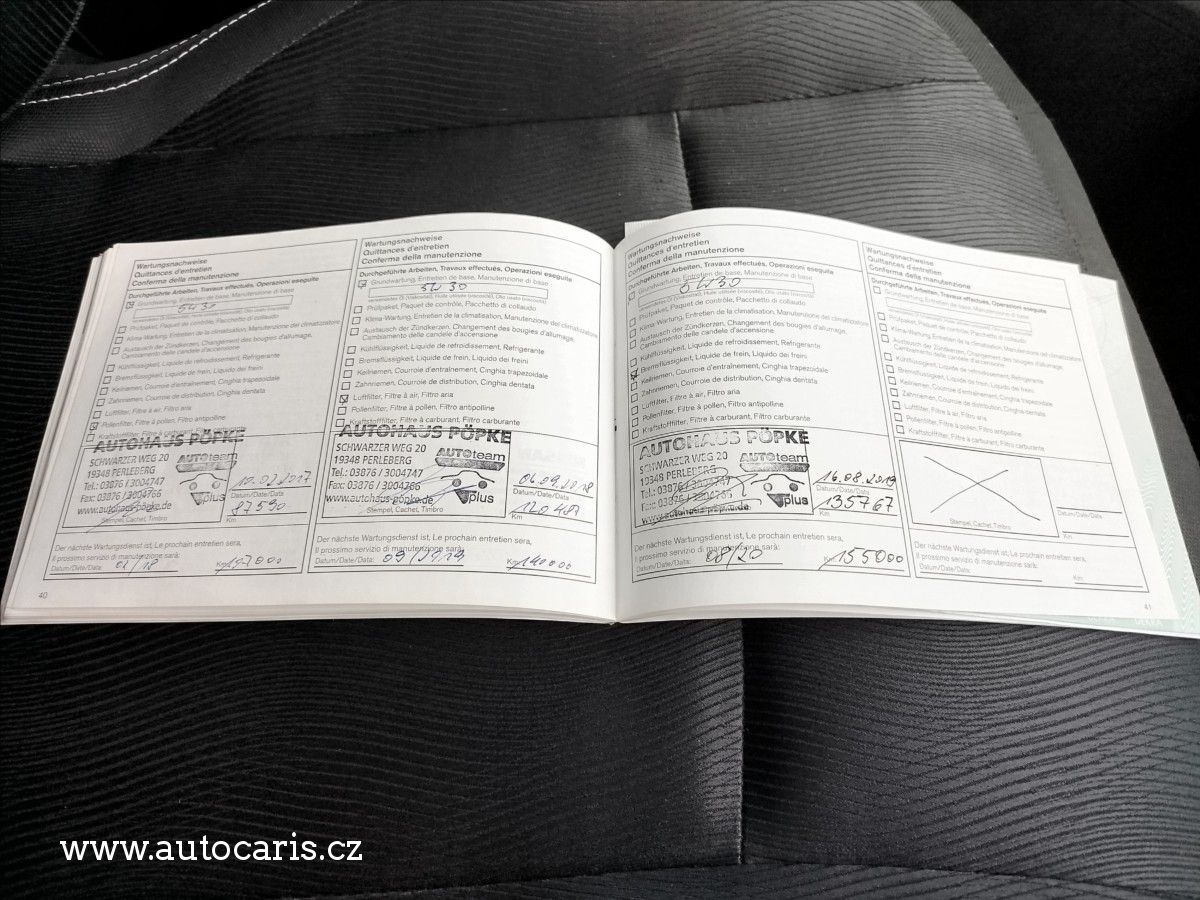 Wartungsnachweise
Quittances d'entretien
Conferma della manutenzione
Durchgeführte Arbeiten, Travaux effectués, Operazioni eseguite
Grundwartung, Entretien de base, Manutenzione di base
5W30
Prüfpaket, Paquet de contrôle, Pacchetto di collaudo
Klima-Wartung, Entretien de la climatisation, Manutenzione del climatizzatore
Austausch der Zündkerzen, Changement des bougies d'allumage,
Cambiamento delle candele d'accensione
Kühlflüssigkeit, Liquide de refroidissement, Refrigerante
Bremsflüssigkeit, Liquide de frein, Liquido dei freini
Keilriemen, Courroie d'entraînement, Cinghia trapezoidale
Zahnriemen, Courroie de distribution, Cinghia dentata
Luftfilter, Filtre à air, Filtro aria
Pollenfilter, Filtre à pollen, Filtro antipolline
AUTOHAUS PÖPKE
SCHWARZER WEG 20
19348 PERLEBERG
Tel.: 03876 / 3004747
Fax: 03876 / 3004766
www.autohaus-pöpke.de
AUTOteam
plus
Stempel, Cachet, Timbro
Datum/Date/Data
87590
Km
Der nächste Wartungsdienst ist, Le prochain entretien sera,
Il prossimo servizio di manutenzione sarà:
Datum/Date/Data:
Km
40
Wartungsnachweise
Quittances d'entretien
Conferma della manutenzione
Durchgeführte Arbeiten, Travaux effectués, Operazioni eseguite
Grundwartung, Entretien de base, Manutenzione di base
5W30
verwendetes Öl (Viskosität), Huile utilisée (viscosité), Olio usato (viscosità)
Prüfpaket, Paquet de contrôle, Pacchetto di collaudo
Klima-Wartung, Entretien de la climatisation, Manutenzione del climatizzatore
Austausch der Zündkerzen, Changement des bougies d'allumage,
Cambiamento delle candele d'accensione
Kühlflüssigkeit, Liquide de refroidissement, Refrigerante
Bremsflüssigkeit, Liquide de frein, Liquido dei freini
Keilriemen, Courroie d'entraînement, Cinghia trapezoidale
Zahnriemen, Courroie de distribution, Cinghia dentata
Luftfilter, Filtre à air, Filtro aria
Pollenfilter, Filtre à pollen, Filtro antipolline
Kraftstofffilter, Filtre à carburant, Filtro carburante
AUTOHAUS PÖPKE
SCHWARZER WEG 20
19348 PERLEBERG
Tel.: 03876 / 3004747
Fax: 03876 / 3004766
www.autohaus-pöpke.de
AUTOteam
plus
Stempel, Cachet, Timbro
Datum/Date/Data
Km
Der nächste Wartungsdienst ist, Le prochain entretien sera,
Il prossimo servizio di manutenzione sarà:
Datum/Date/Data:
Km 140000
Wartungsnachweise
Quittances d'entretien
Conferma della manutenzione
Durchgeführte Arbeiten, Travaux effectués, Operazioni eseguite
Grundwartung, Entretien de base, Manutenzione di base
5W30
verwendetes Öl (Viskosität), Huile utilisée (viscosité), Olio usato (viscosità)
Prüfpaket, Paquet de contrôle, Pacchetto di collaudo
Klima-Wartung, Entretien de la climatisation, Manutenzione del climatizzatore
Austausch der Zündkerzen, Changement des bougies d'allumage,
Cambiamento delle candele d'accensione
Kühlflüssigkeit, Liquide de refroidissement, Refrigerante
Bremsflüssigkeit, Liquide de frein, Liquido dei freini
Keilriemen, Courroie d'entraînement, Cinghia trapezoidale
Zahnriemen, Courroie de distribution, Cinghia dentata
Luftfilter, Filtre à air, Filtro aria
Pollenfilter, Filtre à pollen, Filtro antipolline
Kraftstofffilter, Filtre à carburant, Filtro carburante
AUTOHAUS PÖPKE
SCHWARZER WEG 20
19348 PERLEBERG
Tel.: 03876 / 3004747
Fax: 03876 / 3004766
AUTOteam
plus
16.08.2019
Datum/Date/Data
135767
Km
Der nächste Wartungsdienst ist, Le prochain entretien sera,
Il prossimo servizio di manutenzione sarà:
Datum/Date/Data: 08/20
Km 155000
Wartungsnachweise
Quittances d'entretien
Conferma della manutenzione
Durchgeführte Arbeiten, Travaux effectués, Operazioni eseguite
Grundwartung, Entretien de base, Manutenzione di base
Prüfpaket, Paquet de contrôle, Pacchetto di collaudo
Klima-Wartung, Entretien de la climatisation, Manutenzione del climatizzatore
Austausch der Zündkerzen, Changement des bougies d'allumage,
Cambiamento delle candele d'accensione
Kühlflüssigkeit, Liquide de refroidissement, Refrigerante
Bremsflüssigkeit, Liquide de frein, Liquido dei freini
Keilriemen, Courroie d'entraînement, Cinghia trapezoidale
Zahnriemen, Courroie de distribution, Cinghia dentata
Luftfilter, Filtre à air, Filtro aria
Pollenfilter, Filtre à pollen, Filtro antipolline
Kraftstofffilter, Filtre à carburant, Filtro carburante
Stempel, Cachet, Timbro
Datum/Date/Data
Km
Der nächste Wartungsdienst ist, Le prochain entretien sera,
Il prossimo servizio di manutenzione sarà:
Datum/Date/Data:
Km
41
DEKRA
www.autocaris.cz